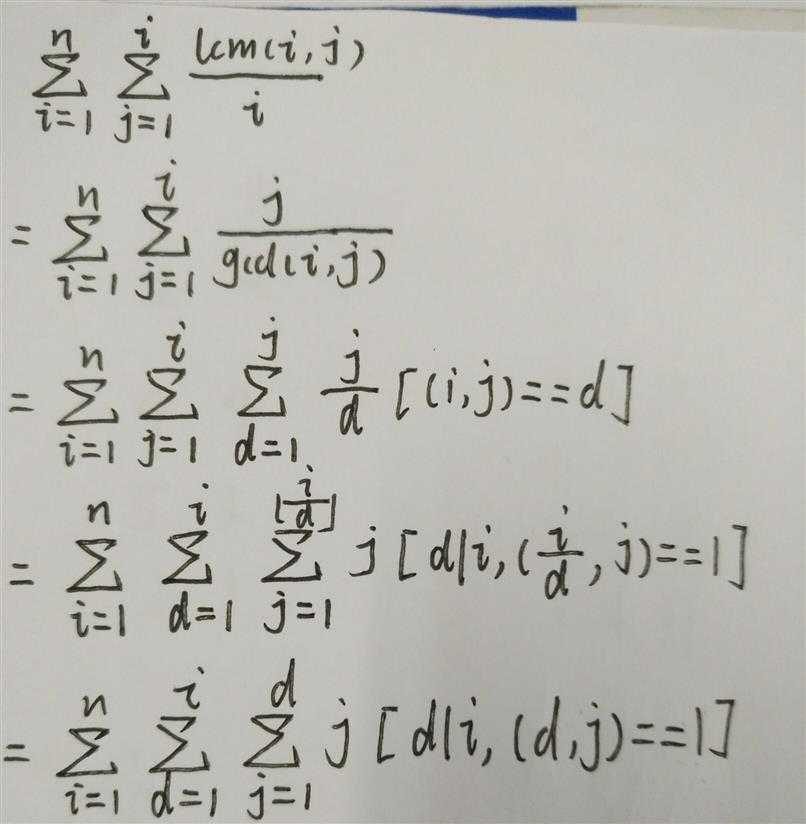 $\sum_{i=1}^{n} \sum_{j=1}^{i} \frac{lcm(i,j)}{i}$
$= \sum_{i=1}^{n} \sum_{j=1}^{i} \frac{j}{gcd(i,j)}$
$= \sum_{i=1}^{n} \sum_{j=1}^{i} \sum_{d=1}^{j} \frac{j}{d} [(i,j)==d]$
$= \sum_{i=1}^{n} \sum_{d=1}^{i} \sum_{j=1}^{\lfloor \frac{i}{d} \rfloor} j [d|i, (\frac{i}{d}, j)==1]$
$= \sum_{i=1}^{n} \sum_{d=1}^{i} \sum_{j=1}^{d} j [d|i, (d,j)==1]$